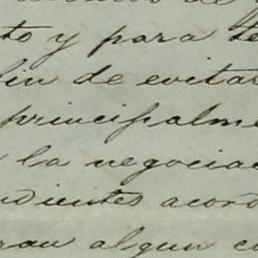 to y para te
fin de evitar
principalme
la negociac
ndientes acord
ran algun co